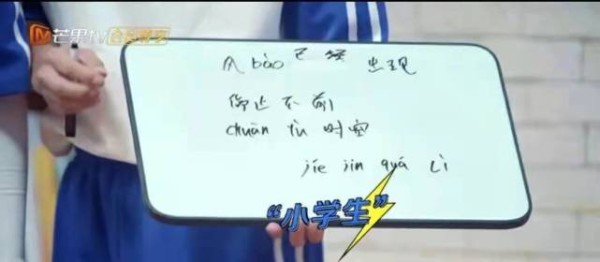 芒果TV
风 bào 已经 出现
停止不前
chuān yù 时空
jíe jìn quá lì
“小学生”